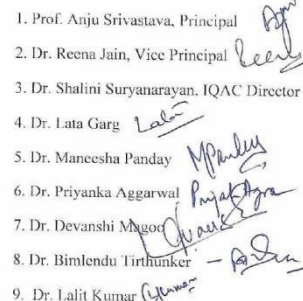 1. Prof. Anju Srivastava, Principal
2. Dr. Reena Jain, Vice Principal
3. Dr. Shalini Suryanarayan, IQAC Director
4. Dr. Lata Garg Lata
5. Dr. Maneesha Panday MPandey
6. Dr. Priyanka Aggarwal
7. Dr. Devanshi Magoo
8. Dr. Bimlendu Tirthunker -
9. Dr. Lalit Kumar